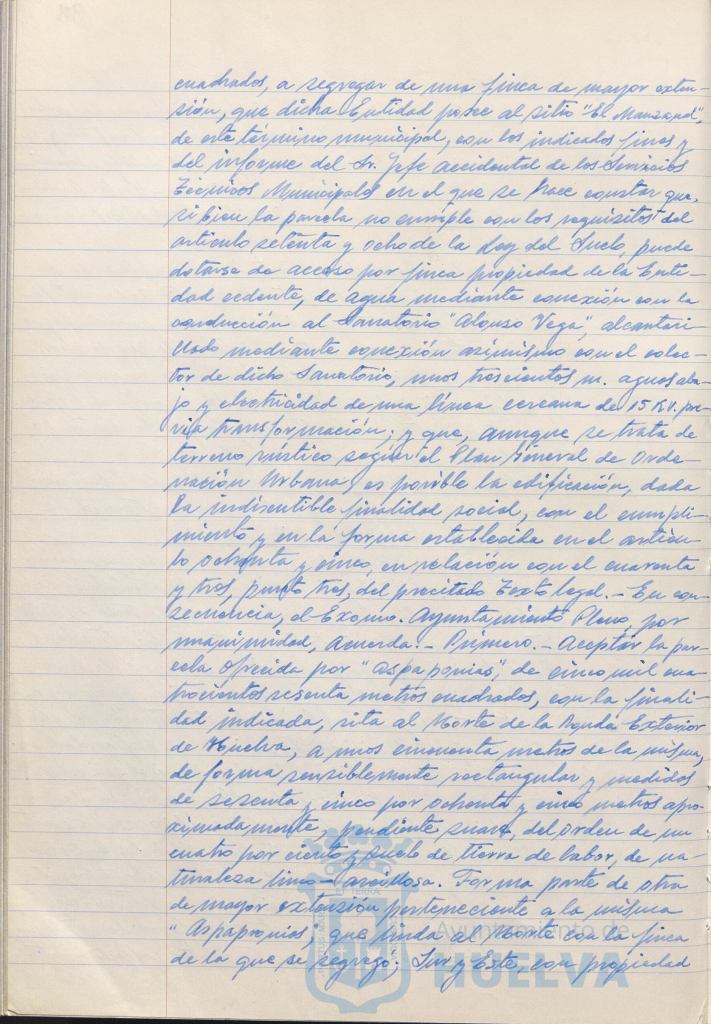 cuadrados, a segregar de una finca de mayor exten-
sión, que dicha Entidad posee al sitio "El Manzanal",
de este término municipal, con los indicados fines y
del informe del Sr. Jefe accidental de los Servicios
Técnicos Municipales en el que se hace constar que,
si bien la parcela no cumple con los requisitos del
artículo setenta y ocho de la Ley del Suelo, puede
dotarse de acceso por finca propiedad de la Enti-
dad cedente, de agua mediante conexión con la
conducción al Sanatorio "Alonso Vega", alcantari-
llado mediante conexión asimismo con el colec-
tor de dicho Sanatorio, unos trescientos m. aguas aba-
jo y electricidad de una línea cercana de 15 KV. pre-
via transformación; y que, aunque se trata de
terreno rústico según el Plan General de Orde-
nación Urbana, es posible la edificación, dada
la indiscutible finalidad social, con el cumpli-
miento y en la forma establecida en el artícu-
lo ochenta y cinco, en relación con el cuarenta
y tres, punto tres, del precitado Texto legal.- En con-
secuencia, el Excmo. Ayuntamiento Pleno, por
unanimidad, acuerda.- Primero.- Aceptar la par-
cela ofrecida por "Aspapronias", de cinco mil cua-
trocientos sesenta metros cuadrados, con la finali-
dad indicada, sita al Norte de la Ronda Exterior
de Huelva, a unos cincuenta metros de la misma,
de forma sensiblemente rectangular y medidas
de sesenta y cinco por ochenta y cinco metros apro-
ximadamente, pendiente suave, del orden de un
cuatro por ciento y suelo de tierra de labor, de na-
turaleza limo-arcillosa. Forma parte de otra
de mayor extensión perteneciente a la misma
"Aspapronias", que linda al Norte con la finca
de la que se segregó; Sur y Este, con propiedad
Ayuntamiento de
HUELVA